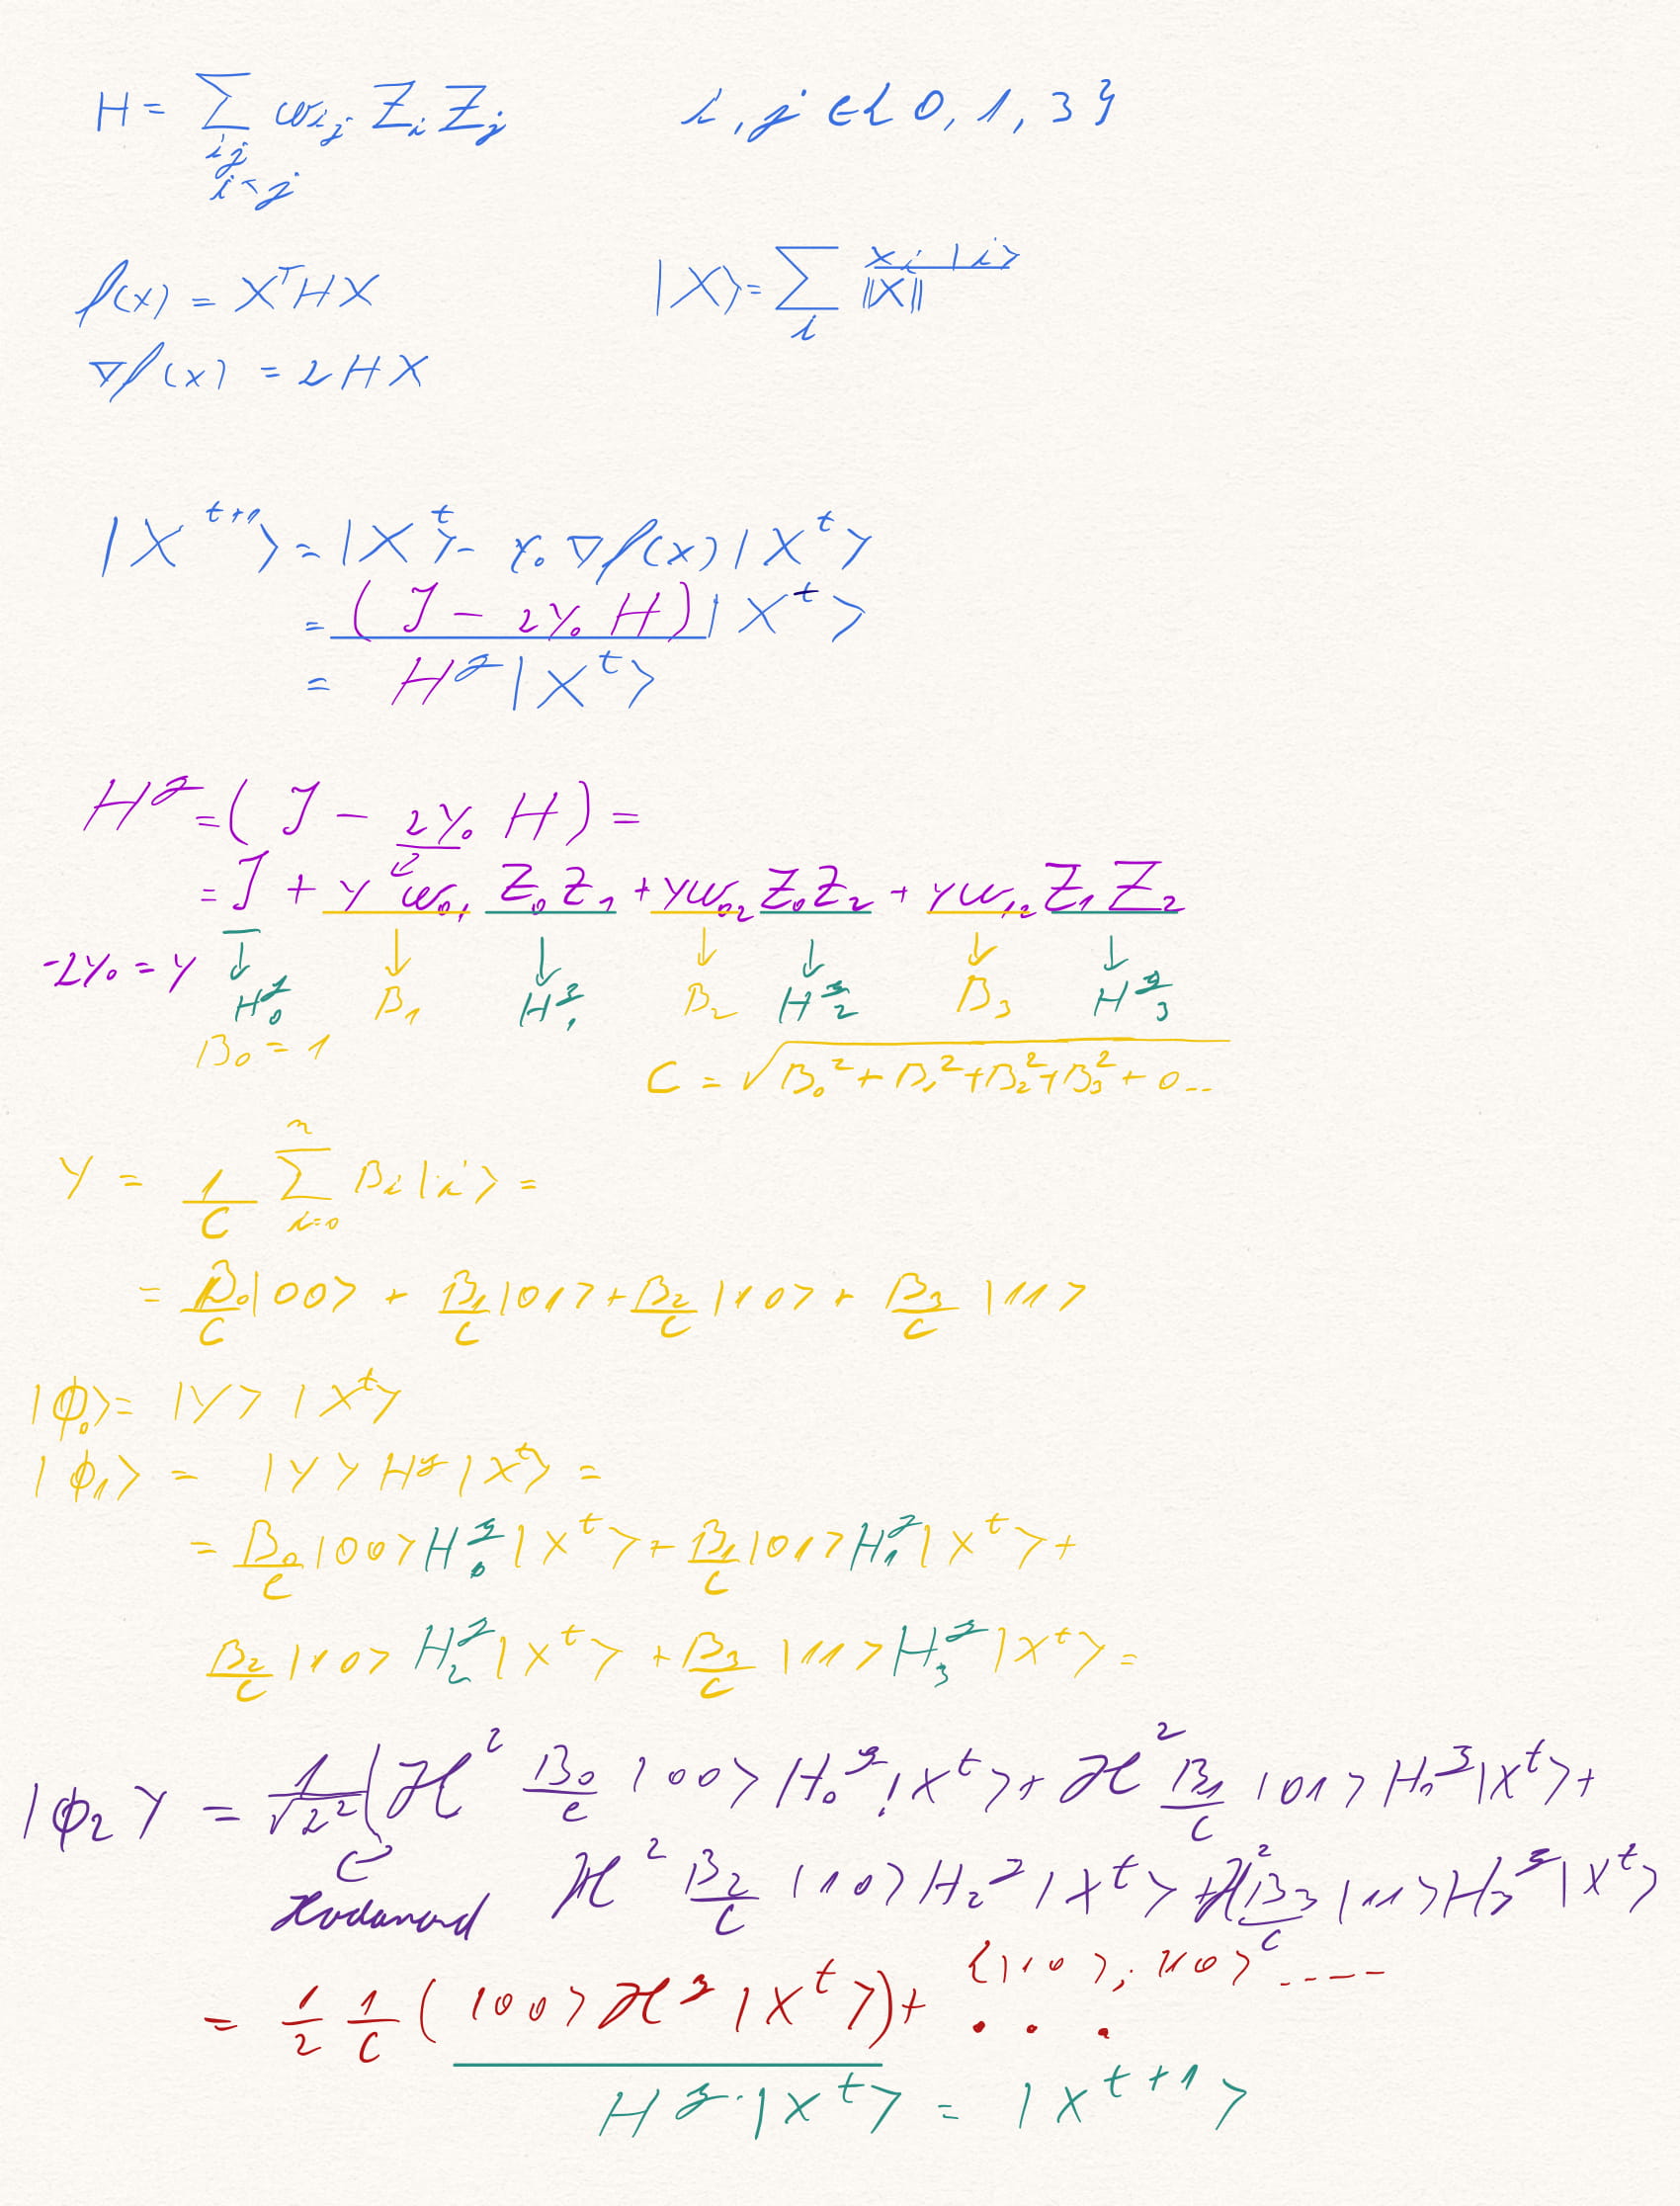 H = ∑_{ij, i<j} ω_{ij} Z_i Z_j    i, j ∈ { 0, 1, 3 }
f(x) = X^T H X    |X⟩ = ∑_i x_i |i⟩ / ‖X‖
∇f(x) = 2 H X
|X^{t+1}⟩ = |X^t⟩ - γ_0 ∇f(x) |X^t⟩
= (I - 2γ_0 H) |X^t⟩
= H^g |X^t⟩
H^g = (I - 2γ_0 H) =
= I + γ ω_{01} Z_0 Z_1 + γω_{02} Z_0 Z_2 + γω_{12} Z_1 Z_2
-2γ_0 = γ ↓ H_0^g ↓ B_1 ↓ H_1^g ↓ B_2 ↓ H_2^g ↓ B_3 ↓ H_3^g
B_0 = 1    C = √(B_0^2 + B_1^2 + B_2^2 + B_3^2 + 0..)
Y = 1/C ∑_{i=0}^{n} B_i |i⟩ =
= B_0/C |00⟩ + B_1/C |01⟩ + B_2/C |10⟩ + B_3/C |11⟩
|ϕ_0⟩ = |Y⟩ |X^t⟩
|ϕ_1⟩ = |Y⟩ H^g |X^t⟩ =
= B_0/C |00⟩ H_0^g |X^t⟩ + B_1/C |01⟩ H_1^g |X^t⟩ +
B_2/C |10⟩ H_2^g |X^t⟩ + B_3/C |11⟩ H_3^g |X^t⟩ =
|ϕ_2⟩ = 1/√2^2 (ℋ^2 B_0/C |00⟩ H_0^g |X^t⟩ + ℋ^2 B_1/C |01⟩ H_1^g |X^t⟩ +
ℋ^2 B_2/C |10⟩ H_2^g |X^t⟩ + ℋ^2 B_3/C |11⟩ H_3^g |X^t⟩
= 1/2 1/C ( |00⟩ ℋ^g |X^t⟩) + {|10⟩, |10⟩ ---- . . .
H^g · |X^t⟩ = |X^{t+1}⟩